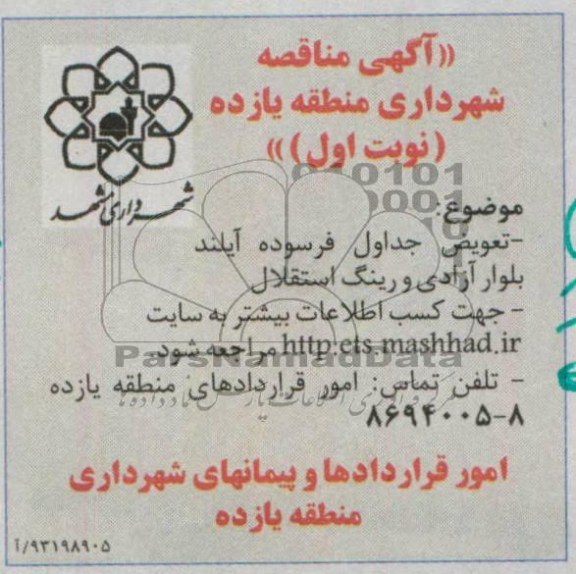 «آگهی مناقصه
شهرداری منطقه یازده
(نوبت اول)»
شهرداری مشهد
موضوع:
-تعویض جداول فرسوده آیلند
بلوار آزادی و رینگ استقلال
- جهت کسب اطلاعات بیشتر به سایت
http:ets.mashhad.ir مراجعه شود.
- تلفن تماس: امور قراردادهای منطقه یازده
۸۶۹۴۰۰۵-۸
امور قراردادها و پیمانهای شهرداری
منطقه یازده
۹۳۱۹۸۹۰۵/آ
ParsNamadData